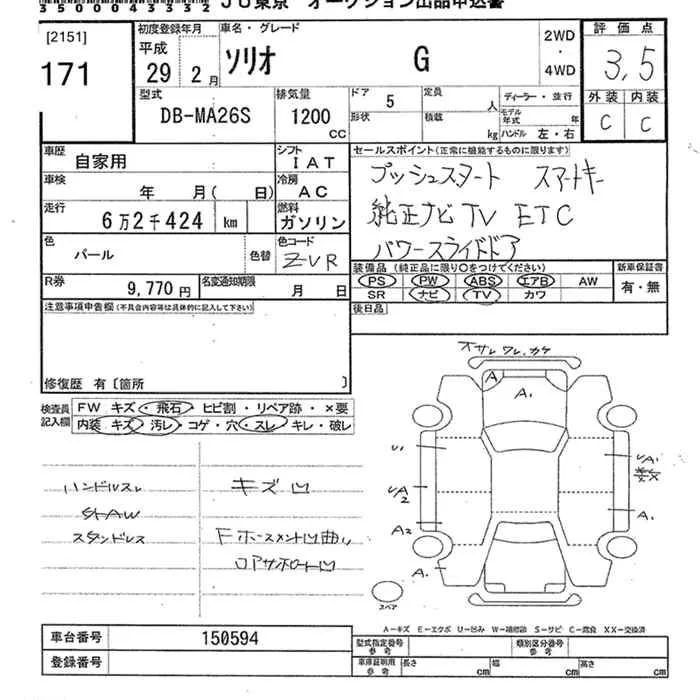 350004 3332
JU東京 オークション出品申込書
[2151]
171
初度登録年月
平成
29 2月
車名・グレード
ソリオ G
2WD
・
4WD
評価点
3,5
型式
DB-MA26S
排気量
1200
CC
ドア
5
形状
定員
人
積載
kg
ディーラー・並行
モデル年式
年
ハンドル 左・右
外装 内装
C C
車歴
自家用
シフト
IAT
車検
年 月( 日)
冷房
AC
走行
6万2千424 km
燃料
ガソリン
色
パール
色替
色コード
ZVR
R券
9,770円
名変通知期限
月 日
セールスポイント(正常に機能するものに限ります)
プッシュスタート スマートキー
純正ナビ TV ETC
パワースライドドア
装備品 (純正品に限り○をつけてください)
PS PW ABS エアB AW
SR ナビ TV カワ
新車保証書
有・無
後日品
注意事項申告欄(不具合内容等は具体的に記入して下さい)
修復歴 有〔箇所 〕
検査員
記入欄
FW キズ・飛石・ヒビ割・リペア跡・×要
内装 キズ・汚レ・コゲ・穴・スレ・キレ・破レ
ハンドルスレ
スタンドレス
キズ凹
Fホースメント凹曲り
コアサポート凹
オサレ ワレ、カケ
A
A1
U1
UA2
A2
A1
UA1
A1
スペア
A－キズ E－エクボ U－凹み W－補修跡 S－サビ C－腐食 XX－交換済
車台番号
150594
登録番号
型式指定番号
参考
類別区分番号
参考
車庫証明用
参考
長さ cm 幅 cm 高さ cm